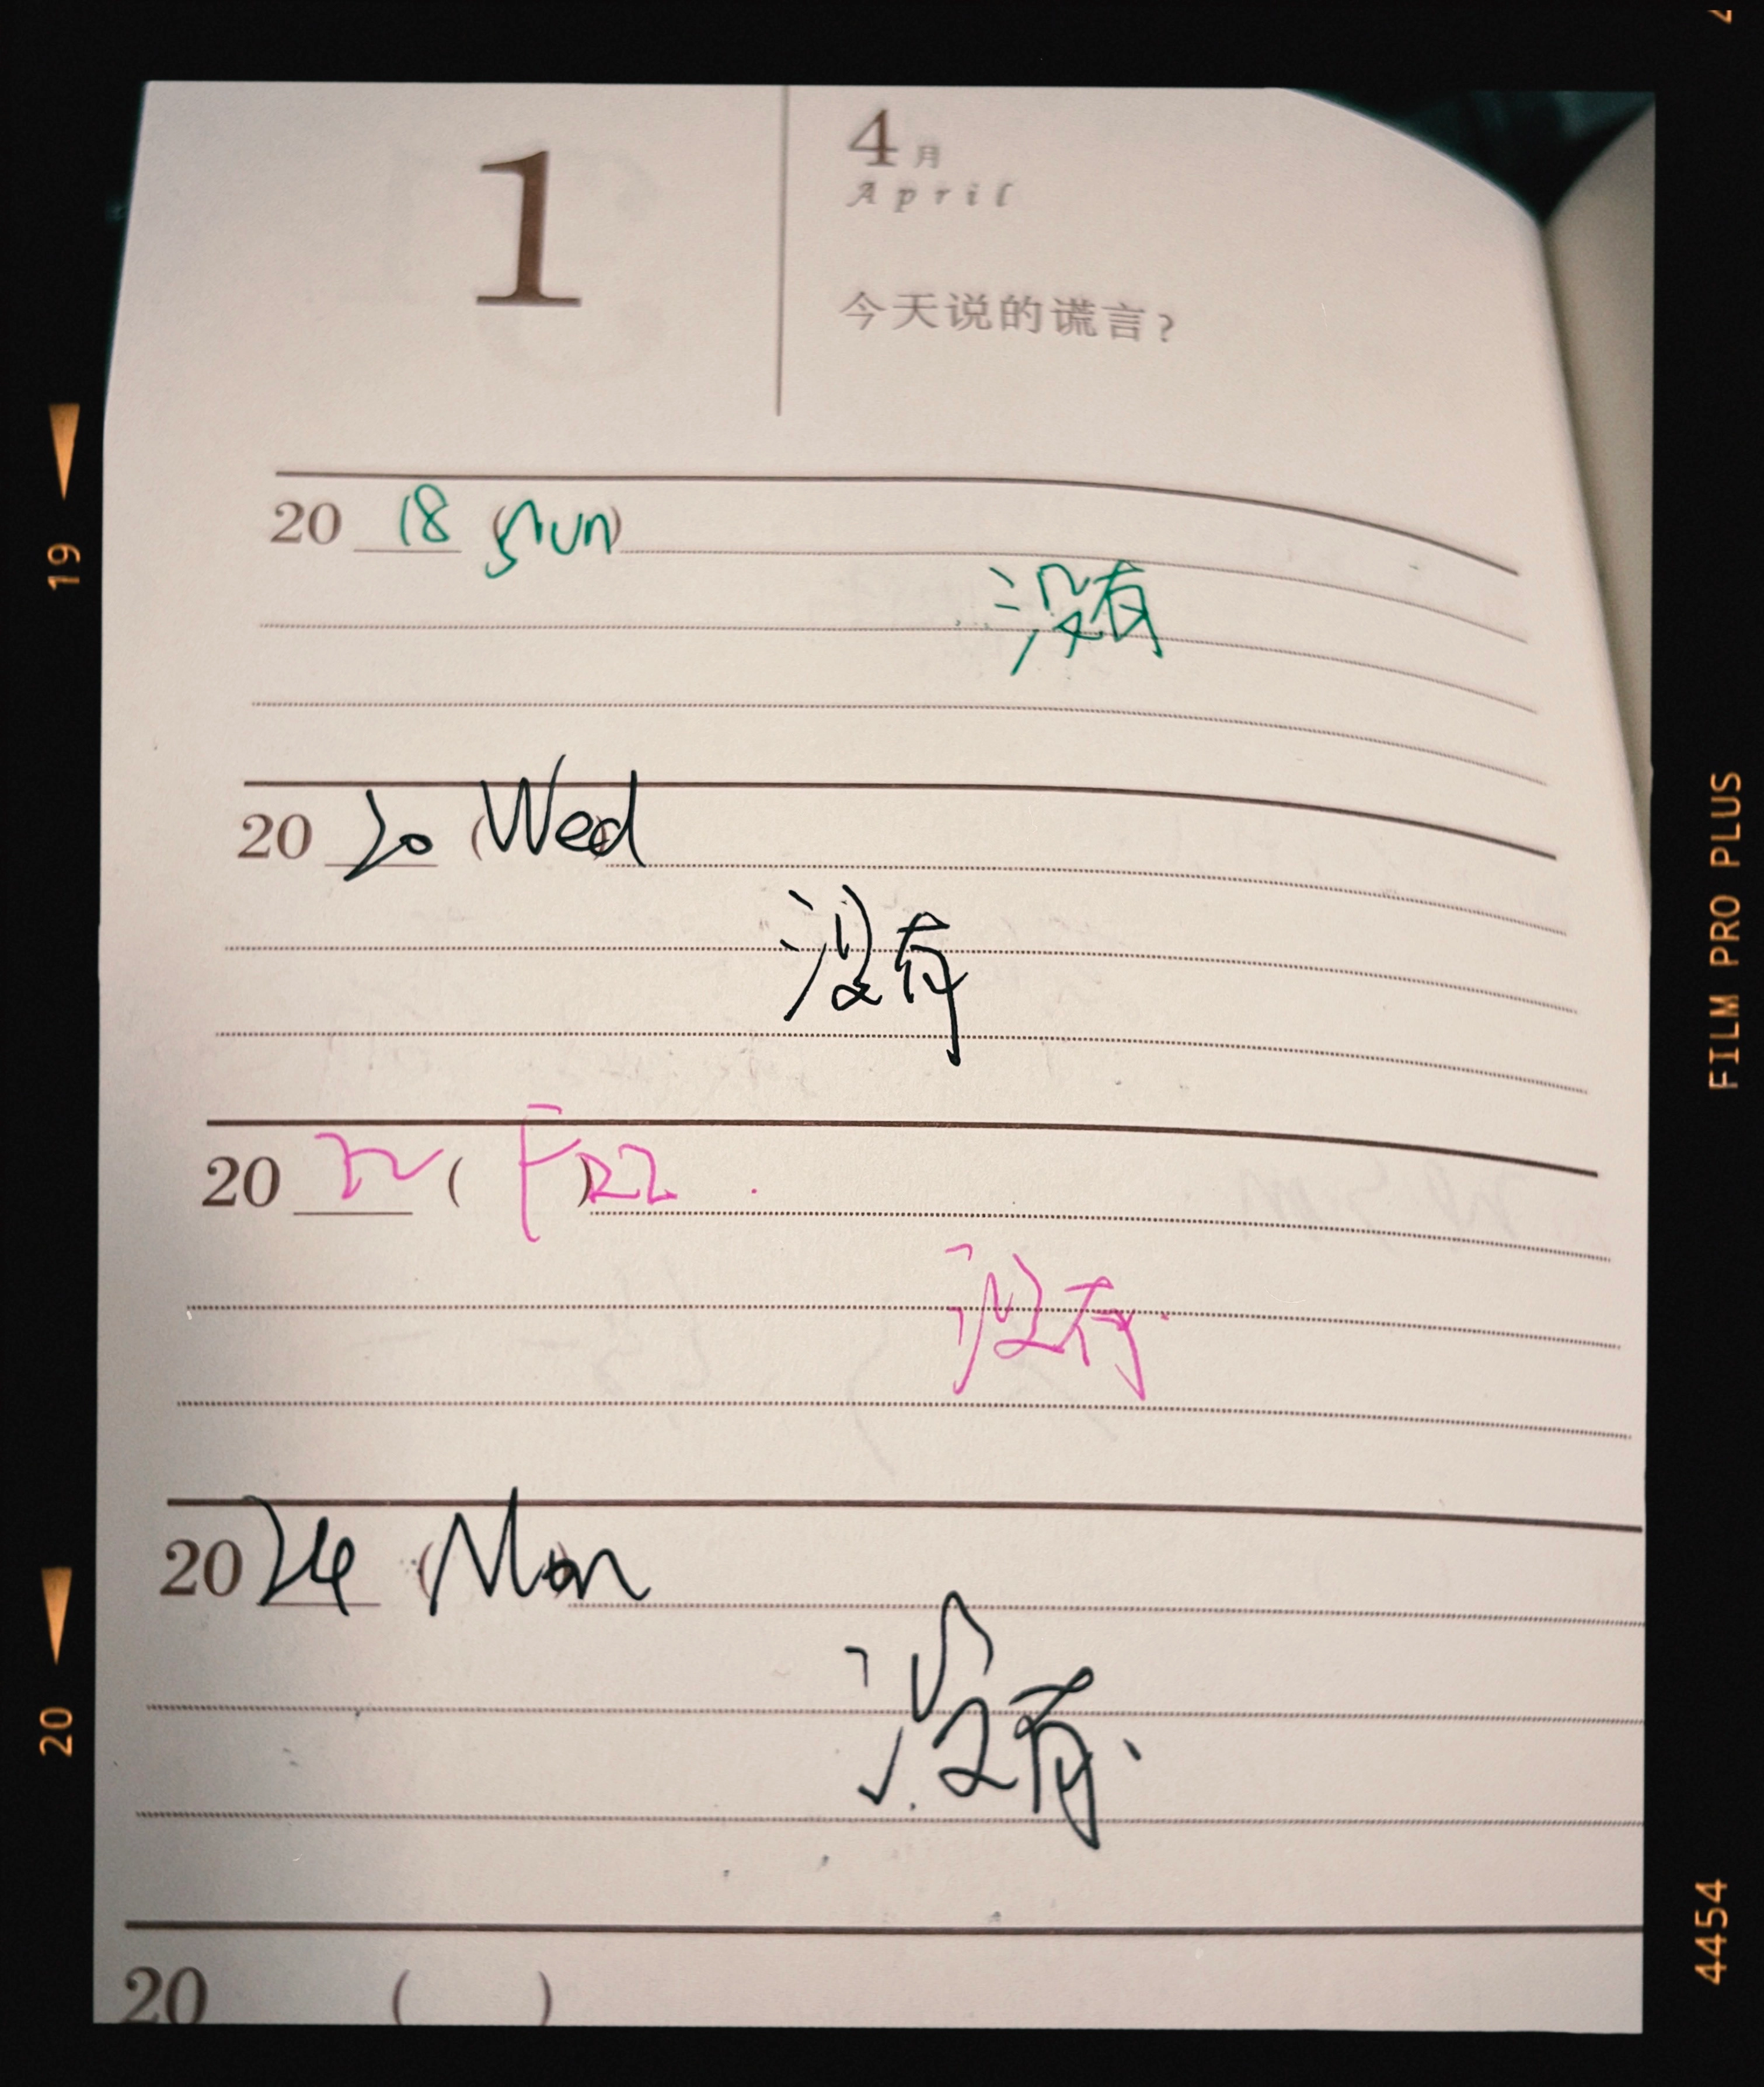 1
4月
April
今天说的谎言?
20 18 (Sun)
没有
20 20 (Wed)
没有
20 22 (F)
没有
20 24 (Mon)
没有.
20 ( )
19
20
FILM PRO PLUS
4454